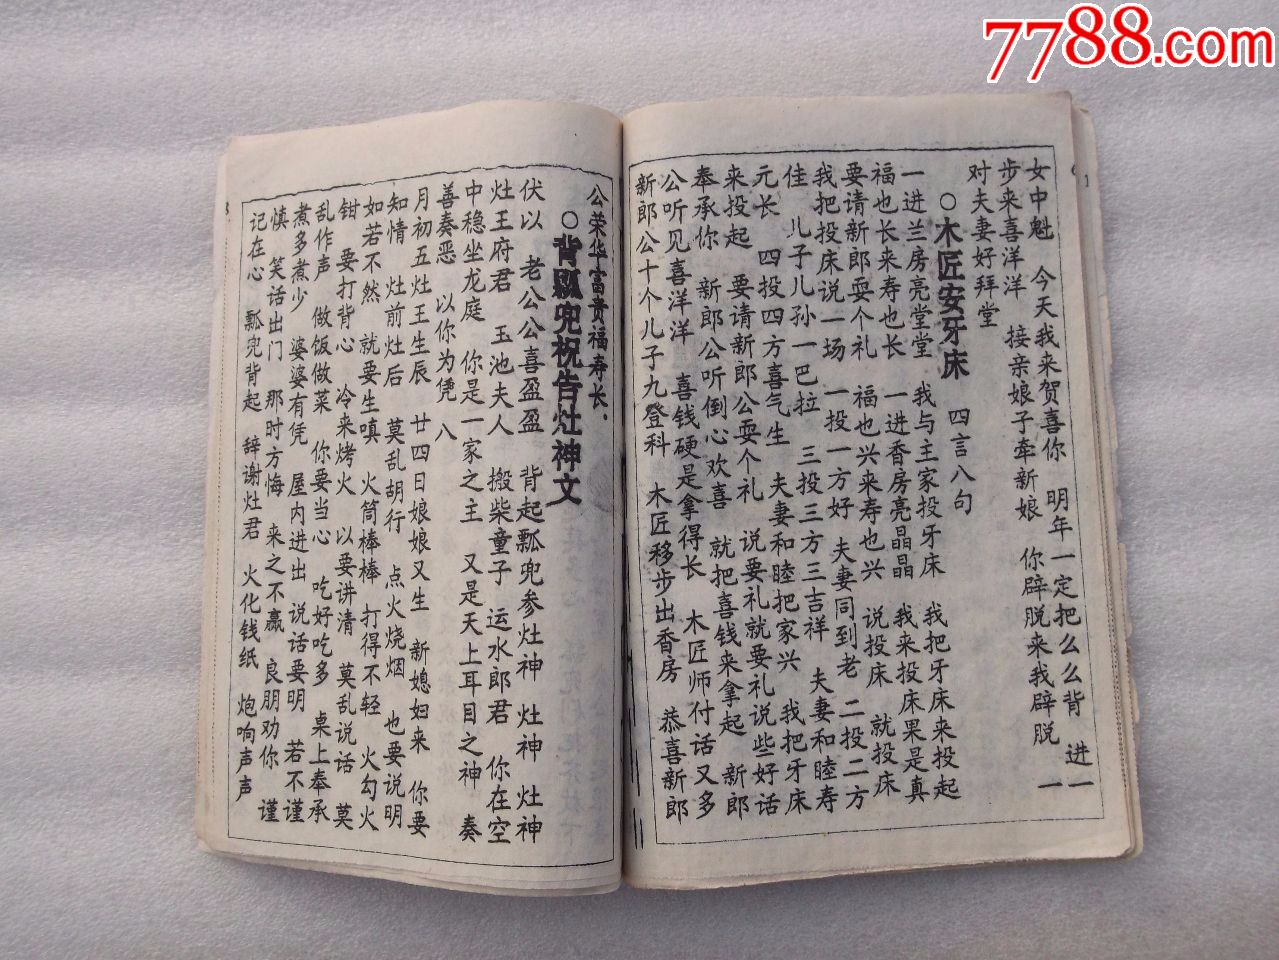 7788.com
女中魁　今天我来贺喜你　明年一定把么么背　进一
步来喜洋洋　接亲娘子牵新娘　你辟脱来我辟脱　一
对夫妻好拜堂
○木匠安牙床　四言八句
一进兰房亮堂堂　我与主家投牙床　我把牙床来投起
福也长来寿也长　一进香房亮晶晶　我来投床果是真
要请新郎耍个礼　福也兴来寿也兴　说投床　就投床
我把投床说一场　一投一方好　夫妻同到老　二投二方
佳　儿子儿孙一巴拉　三投三方三吉祥　夫妻和睦寿
元长　四投四方喜气生　夫妻和睦把家兴　我把牙床
来投起　要请新郎公耍个礼　说要礼就要礼说些好话
奉承你　新郎公听倒心欢喜　就把喜钱来拿起　新郎
公听见喜洋洋　喜钱硬是拿得长　木匠师付话又多
新郎公十个儿子九登科　木匠移步出香房　恭喜新郎
公荣华富贵福寿长．
○背瓢兜祝告灶神文
伏以　老公公喜盈盈　背起瓢兜参灶神　灶神　灶神
灶王府君　玉池夫人　搬柴童子　运水郎君　你在空
中稳坐龙庭　你是一家之主　又是天上耳目之神　奏
善奏恶　以你为凭　八
月初五灶王生辰　廿四日娘娘又生　新媳妇来　你要
知情　灶前灶后　莫乱胡行　点火烧烟　也要说明
如若不然　就要生嗔　火筒棒棒　打得不轻　火勾火
钳　要打背心　冷来烤火　以要讲清　莫乱说话　莫
乱作声　做饭做菜　你要当心　吃好吃多　桌上奉承
煮多煮少　婆婆有凭　屋内进出　说话要明　若不谨
慎　笑话出门　那时方悔　来之不赢　良朋劝你　谨
记在心　瓢兜背起　辞谢灶君　火化钱纸　炮响声声